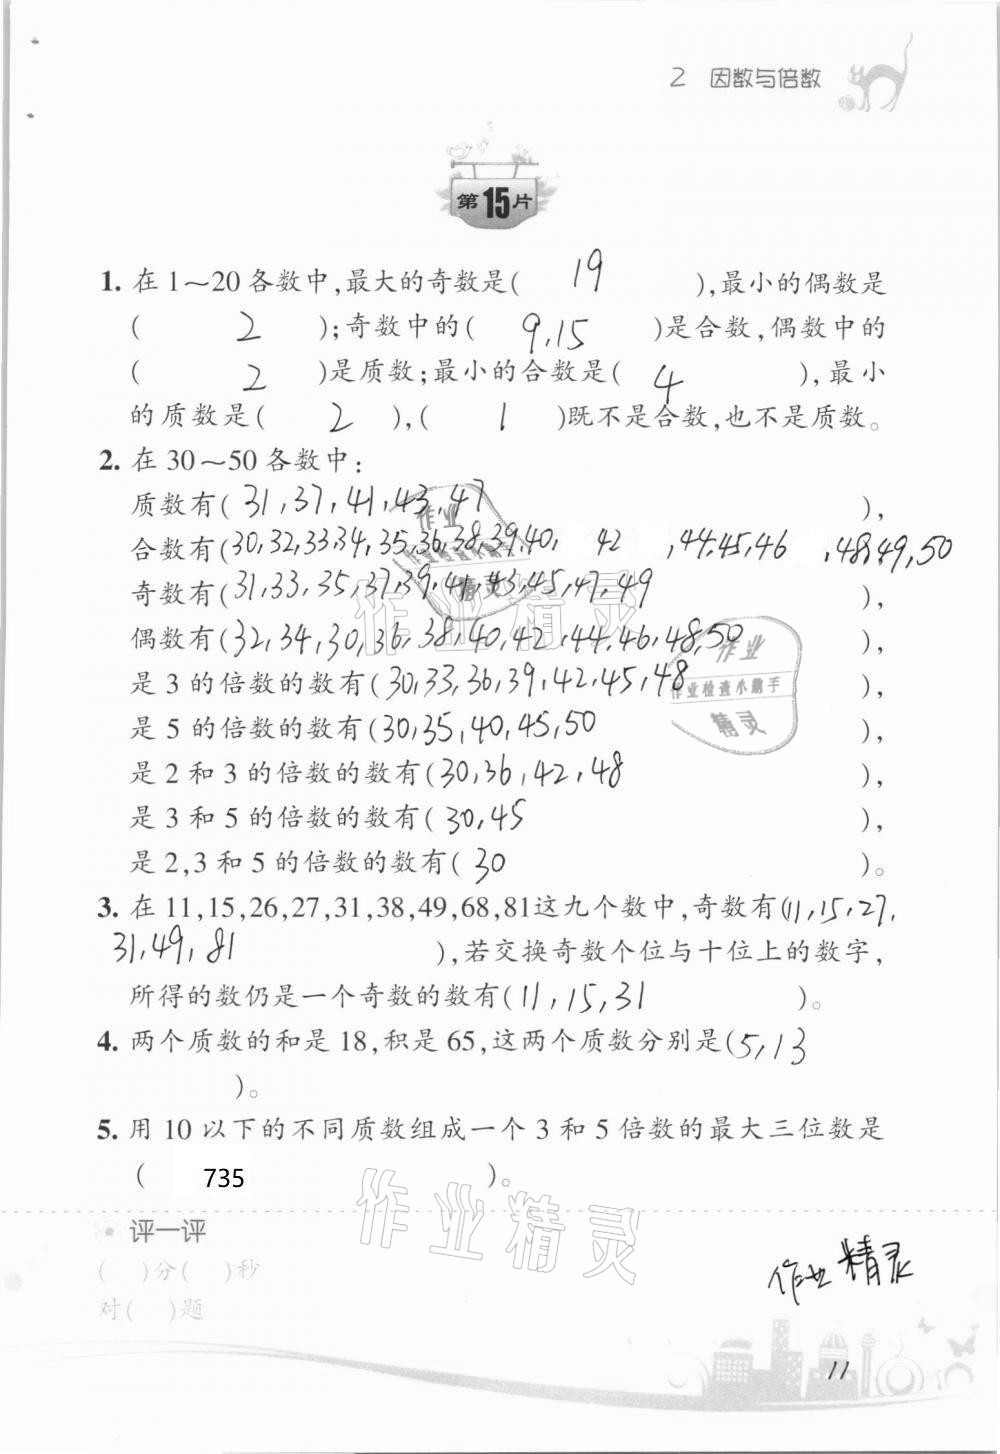 2 因数与倍数
第15片
1. 在1～20各数中,最大的奇数是( 19 ),最小的偶数是
( 2 );奇数中的( 9,15 )是合数,偶数中的
( 2 )是质数;最小的合数是( 4 ),最小
的质数是( 2 ),( 1 )既不是合数,也不是质数。
2. 在30～50各数中:
质数有( 31,37,41,43,47 ),
合数有(30,32,33,34,35,36,38,39,40, 42 ,44,45,46 ,48,49,50
奇数有(31,33,35,37,39,41,43,45,47,49 ),
偶数有(32,34,30,36,38,40,42,44,46,48,50 ),
是3的倍数的数有(30,33,36,39,42,45,48 ),
是5的倍数的数有(30,35,40,45,50 ),
是2和3的倍数的数有(30,36,42,48 ),
是3和5的倍数的数有( 30,45 ),
是2,3和5的倍数的数有( 30 )。
3. 在11,15,26,27,31,38,49,68,81这九个数中,奇数有(11,15,27,
31,49,81 ),若交换奇数个位与十位上的数字,
所得的数仍是一个奇数的数有(11,15,31 )。
4. 两个质数的和是18,积是65,这两个质数分别是(5,13
)。
5. 用10以下的不同质数组成一个3和5倍数的最大三位数是
( 735 )。
评一评
( )分( )秒
对( )题
作业精灵
11
作业
作业检查小助手
精灵
作业精灵
作业
作业检查小助手
精灵
作业精灵